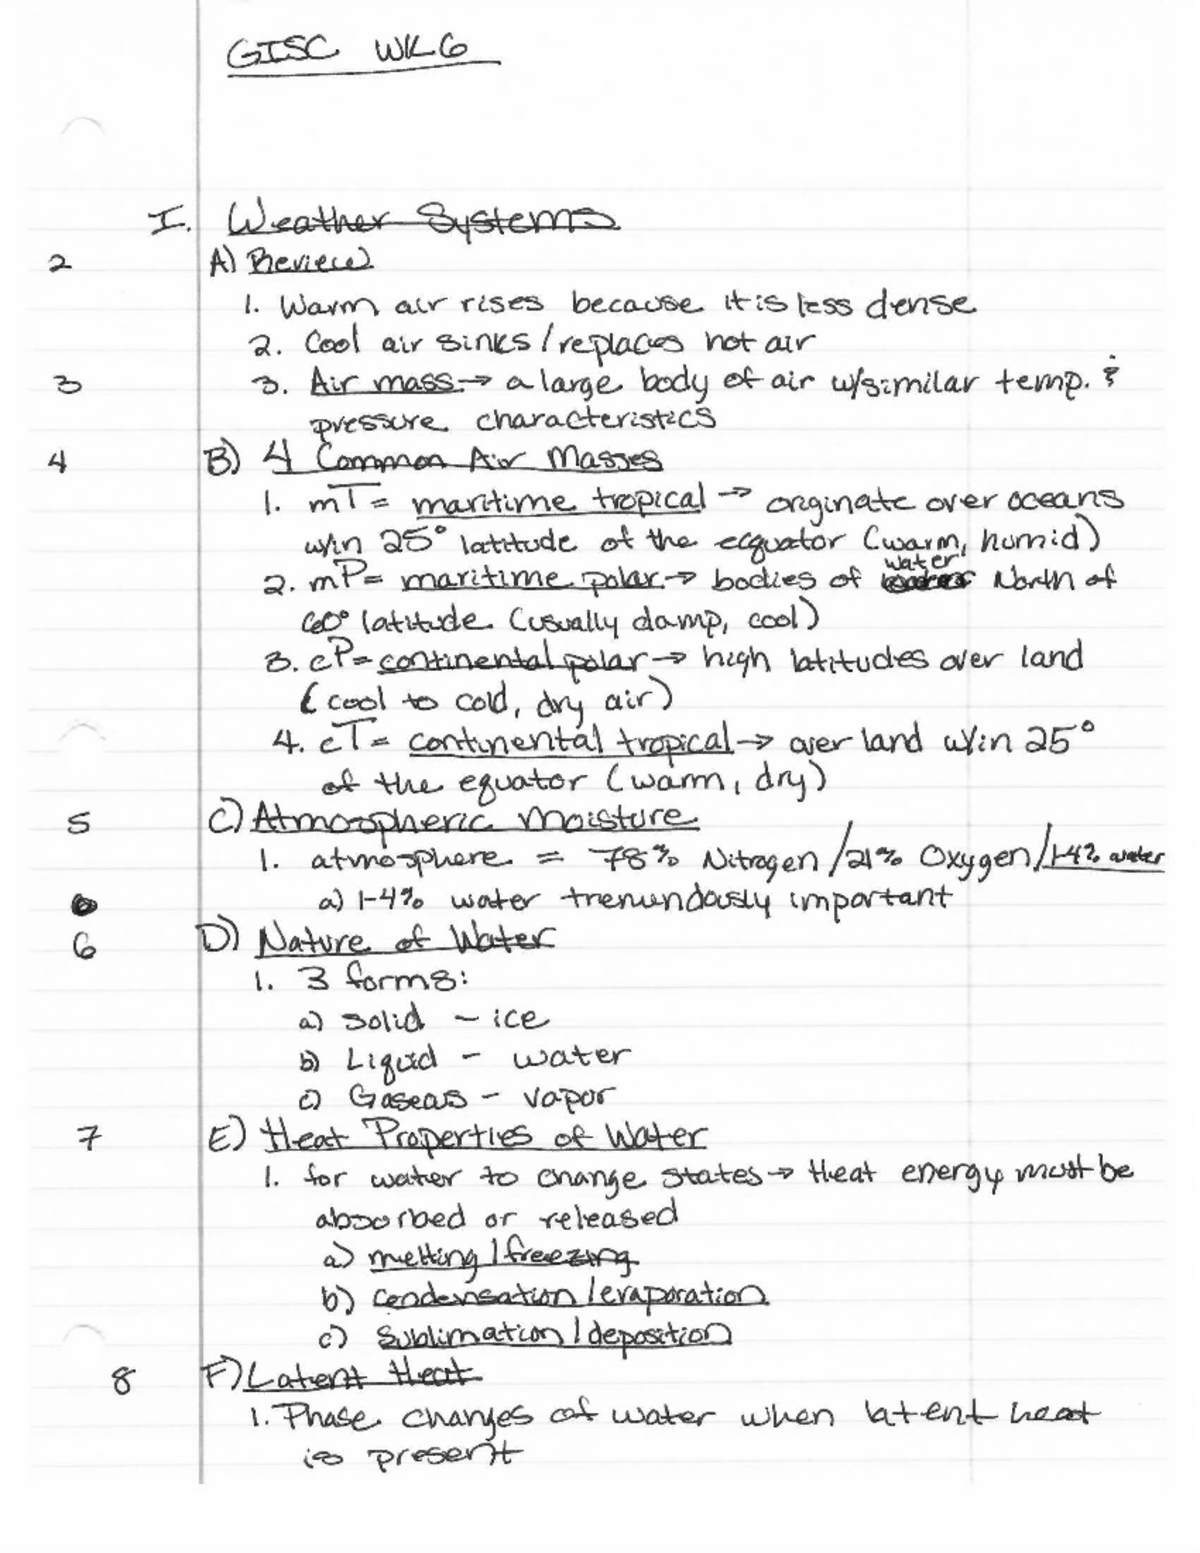 GISC WK6
I. Weather Systems
2 A) Review
1. Warm air rises because it is less dense
2. Cool air sinks/replaces hot air
3 3. Air mass → a large body of air w/similar temp. &
pressure characteristics
4 B) 4 Common Air Masses
1. mT = maritime tropical → originate over oceans
w/in 25° latitude of the ecquator (warm, humid)
2. mP = maritime polar → bodies of water North of
60° latitude (usually damp, cool)
3. cP = continental polar → high latitudes over land
(cool to cold, dry air)
4. cT = continental tropical → over land w/in 25°
of the equator (warm, dry)
5 C) Atmospheric Moisture
1. atmosphere = 78% Nitrogen/21% Oxygen/1-4% water
a) 1-4% water tremendously important
6 D) Nature of Water
1. 3 forms:
a) solid - ice
b) Liquid - water
c) Gaseas - vapor
7 E) Heat Properties of Water
1. for water to change states → Heat energy must be
absorbed or released
a) melting/freezing
b) condensation/evaporation
c) Sublimation/deposition
8 F) Latent Heat
1. Phase changes of water when latent heat
is present